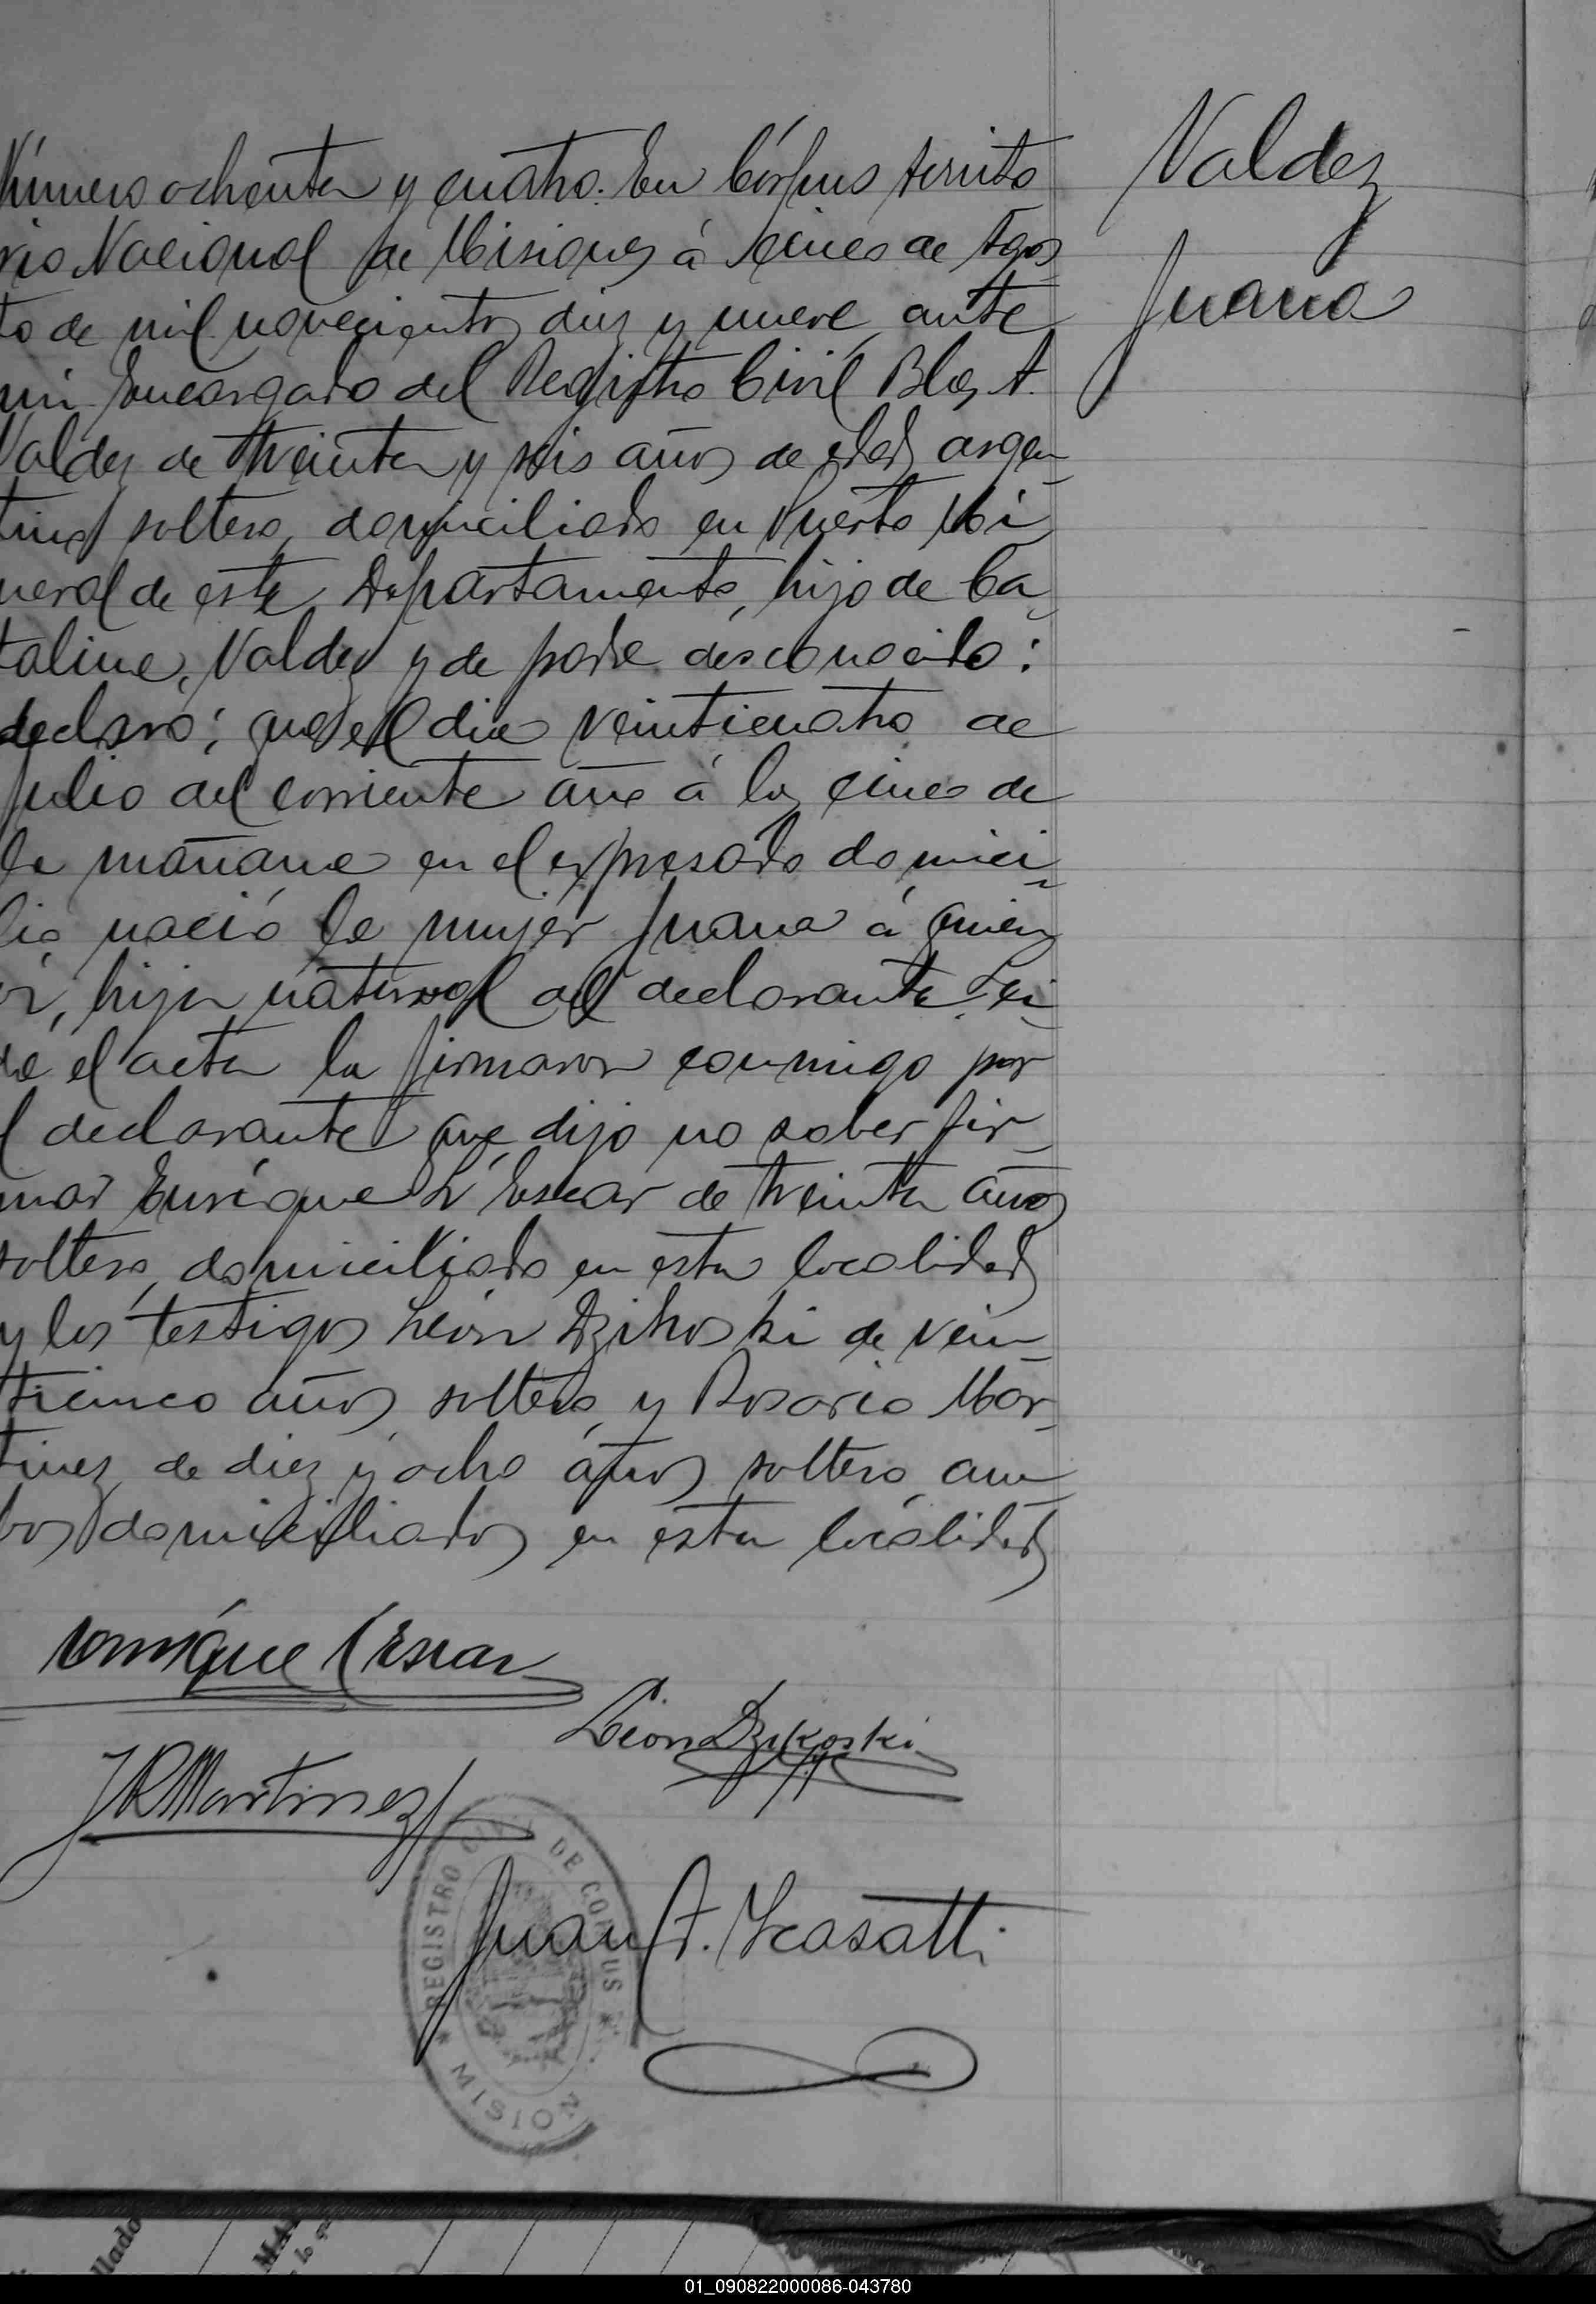 Valdez
Juana
Número ochenta y cuatro. En Córpus territo
rio Nacional de Misiones à cinco de Agos
to de mil novecientos diez y nueve, ante
mi Encargado del Registro Civil Blas A.
Valdez de treinta y seis años de edad argen
tino soltero, domiciliado en Puerto Mi
neral de este Departamento, hijo de Ca
talina Valdez y de padre desconocido:
declaró; que el dia veinticuatro de
Julio del corriente año à las cinco de
la mañana en el expresado domici
lio nació la mujer Juana à quien
hija natural del declarante. Lei
da el acta la firmaron conmigo por
el declarante que dijo no saber fir
mar Enrique L'Escar de treinta años
soltero, domiciliado en esta localidad
y los testigos León Dzikoski de vein
ticinco años soltero, y Rosario Mar
tinez de diez y ocho años soltero, am
bos domiciliados en esta localidad
Enrique L'Escar
León Dzikoski
JRMartinez
REGISTRO CIVIL DE CORPUS
MISION
Juan F.
01_090822000086-043780